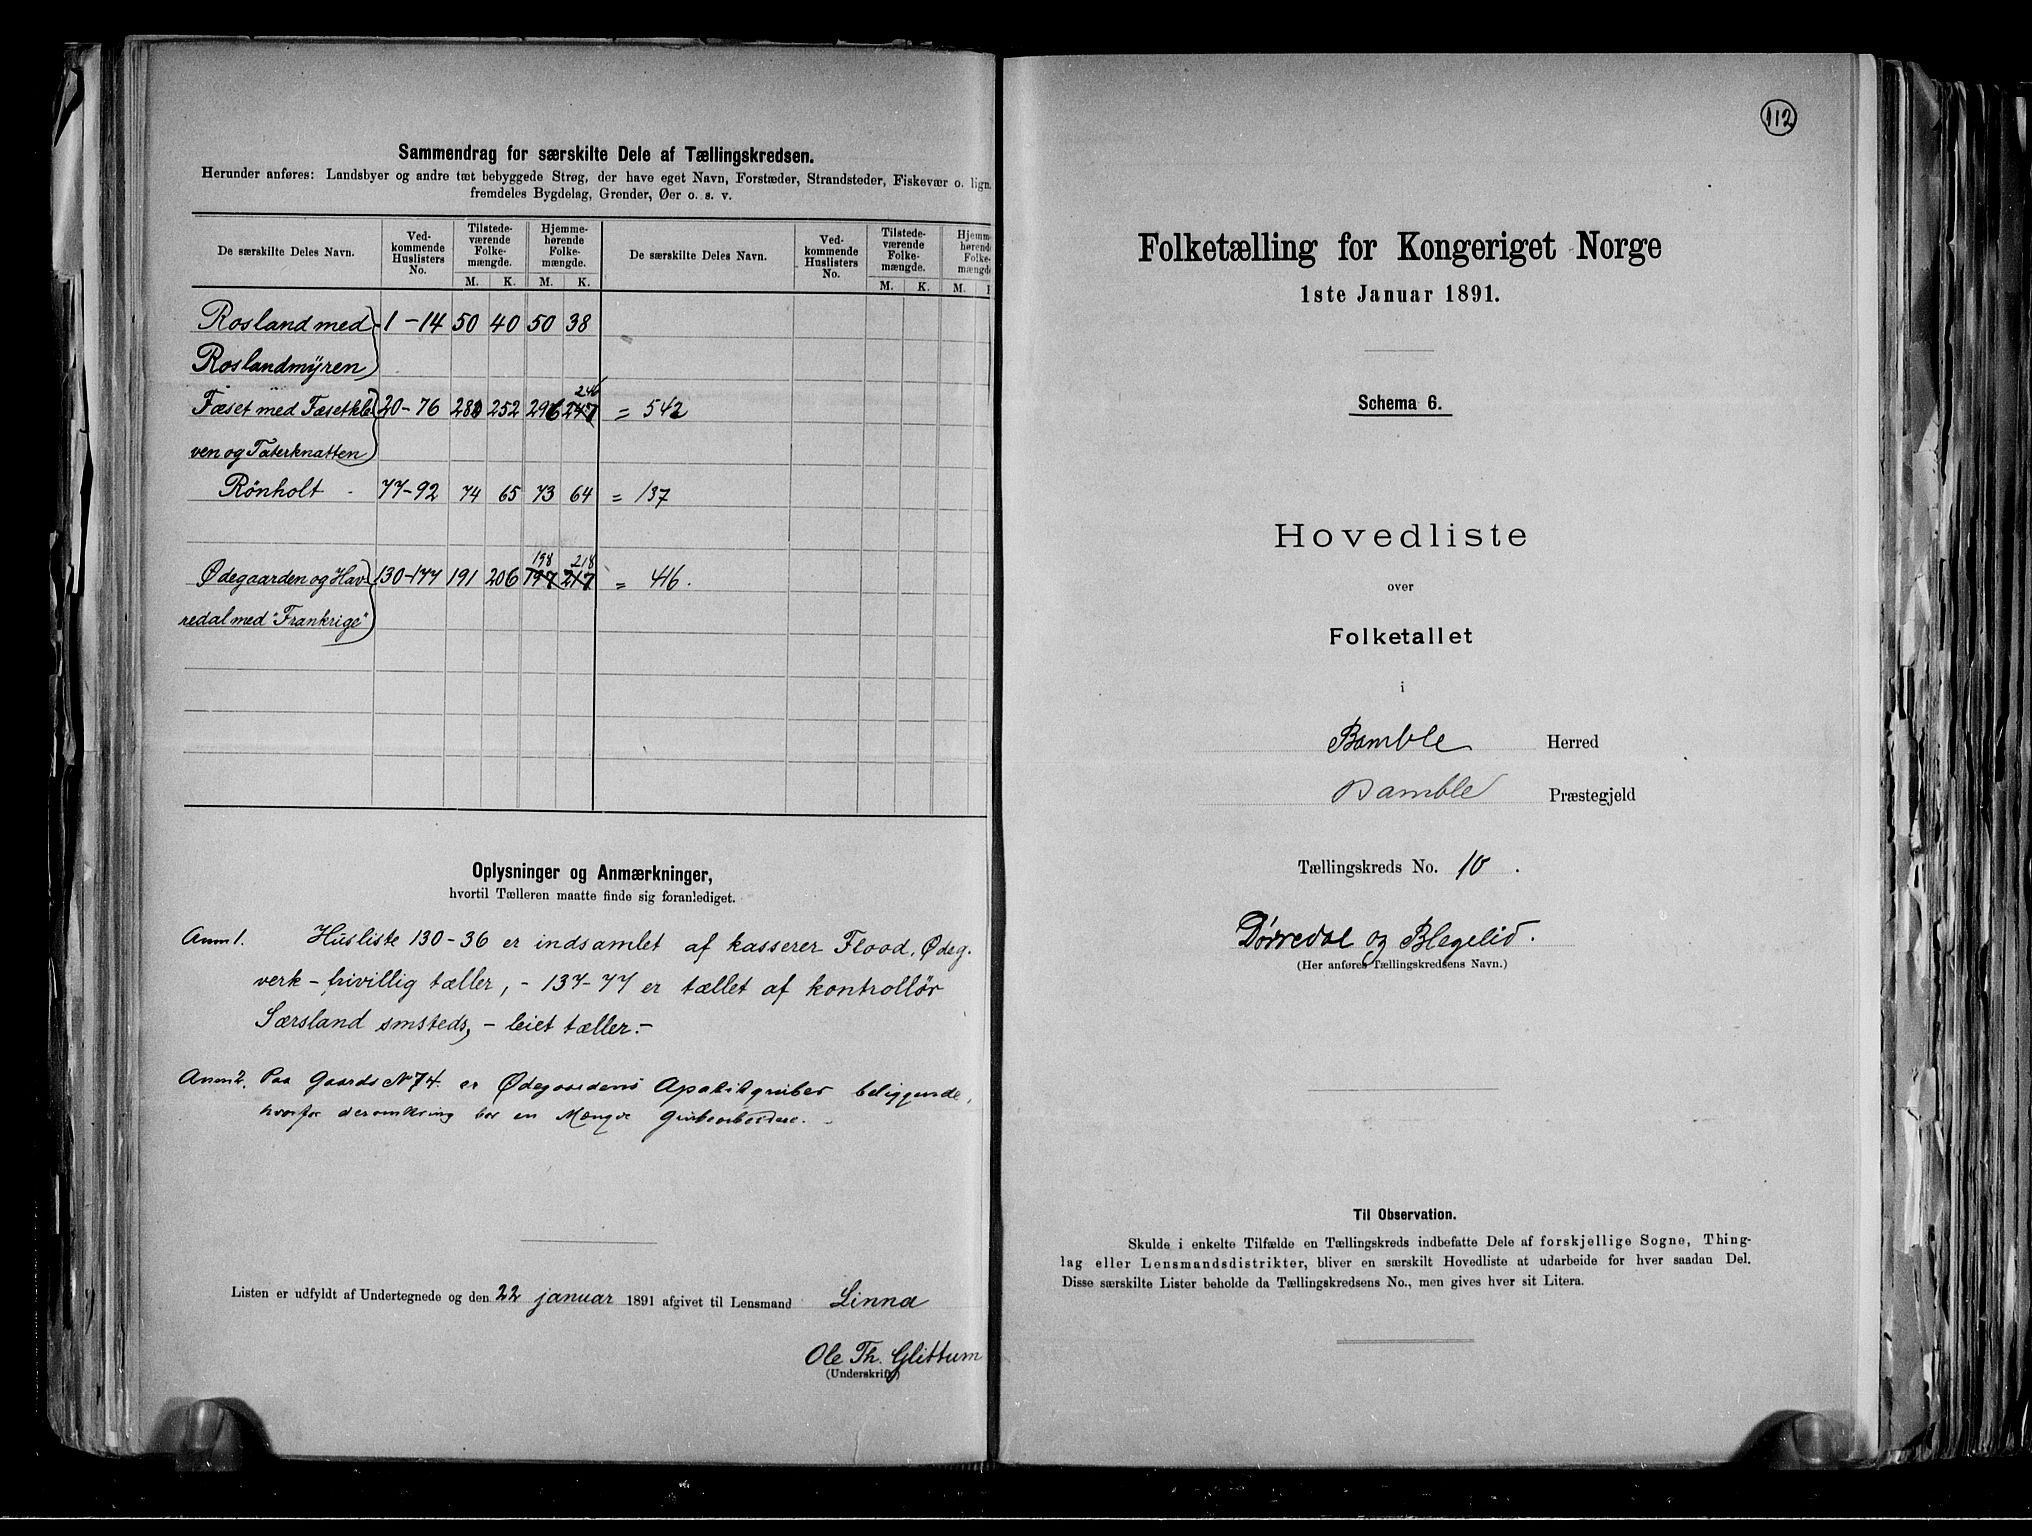 Sammendrag for særskilte Dele af Tællingskredsen.
Herunder anføres: Landsbyer og andre tæt bebyggede Strøg, der have eget Navn, Forstæder, Strandsteder, Fiskevær o. lign.
fremdeles Bygdelag, Grender, Øer o. s. v.
De særskilte Deles Navn. Ved-kommende Huslisters No. Tilstede-værende Folke-mængde. Hjemme-hørende Folke-mængde. De særskilte Deles Navn. Ved-kommende Huslisters No. Tilstede-værende Folke-mængde. Hjemme-hørende Folke-mængde
M. K. M. K. M. K. M.
Rosland med 1-14 50 40 50 38
Roslandmÿren
246
Fæset med Fæsetkle 20-76 252 296 247 = 542
ven og Taterknatten
Rönholt 77-92 74 65 73 64 = 137
198 218
Ødegaarden og Hav 130-177 191 206 197 217 = 416.
redal med "Frankrige"
Oplysninger og Anmærkninger,
hvortil Tælleren maatte finde sig foranlediget.
Anm 1. Husliste 130-36 er indsamlet af kasserer Flood, Ødeg.
verk - frivillig tæller, - 137-77 er tællet af kontrollör
Særsland smsteds, - leiet tæller.-
Anm 2. Paa Gaards No 74 er Ødegaardens Apatitgruber beliggende,
hvorfor deromkring bor en Mængde Grubearbeidere.
Listen er udfyldt af Undertegnede og den 22 januar 1891 afgivet til Lensmand Linna
Ole Th. Glittum
(Underskrift)
112
Folketælling for Kongeriget Norge
1ste Januar 1891.
Schema 6.
Hovedliste
over
Folketallet
i
Bamble Herred
Bamble Præstegjeld
Tællingskreds No. 10.
Dørredal og Blegelid.
(Her anføres Tællingskredsens Navn.)
Til Observation.
Skulde i enkelte Tilfælde en Tællingskreds indbefatte Dele af forskjellige Sogne, Thing-
lag eller Lensmandsdistrikter, bliver en særskilt Hovedliste at udarbeide for hver saadan Del.
Disse særskilte Lister beholde da Tællingskredsens No., men gives hver sit Litera.